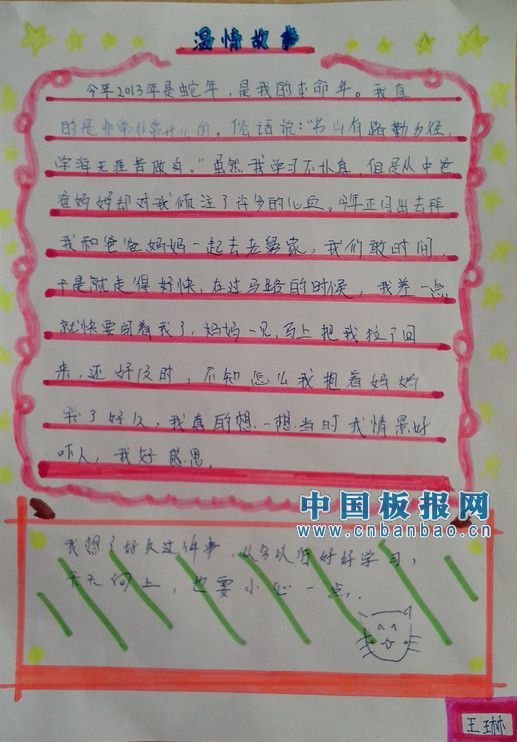 温情故事
今年2013年是蛇年，是我的本命年。我真
的是非常非常开心的，俗话说："书山有路勤为径，
学海无涯苦做舟。"虽然我学习不认真，但是从中爸
爸妈妈却对我倾注了许多的心血。今年正月出去拜
我和爸爸妈妈一起去老舅家，我们敢时间，
于是就走得好快，在过马路的时候，我差一点
就快要闯着我了，妈妈一见，马上把我拉了回
来，还好及时，不知怎么我抱着妈妈
哭了好久，我真的想一想当时我情景好
吓人，我好感恩。
中国板报网
www.cnbanbao.cn
我想了好久这件事，从今以后好好学习，
天天向上，也要小心一点，
王琳